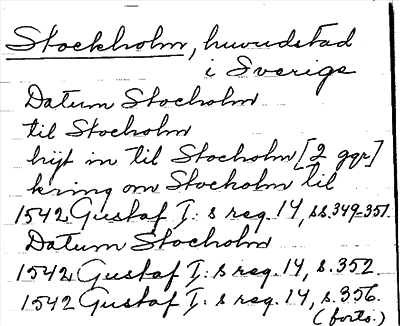 Stockholm, huvudstad
i Sverige
Datum Stocholm
til Stocholm
hijt in til Stocholm [2 ggr]
kring om Stocholm til
1542 Gustaf I: s reg. 14, ss. 349-351.
Datum Stocholm
1542 Gustaf I: s reg. 14, s. 352.
1542 Gustaf I: s reg. 14, s. 356.
(forts.)